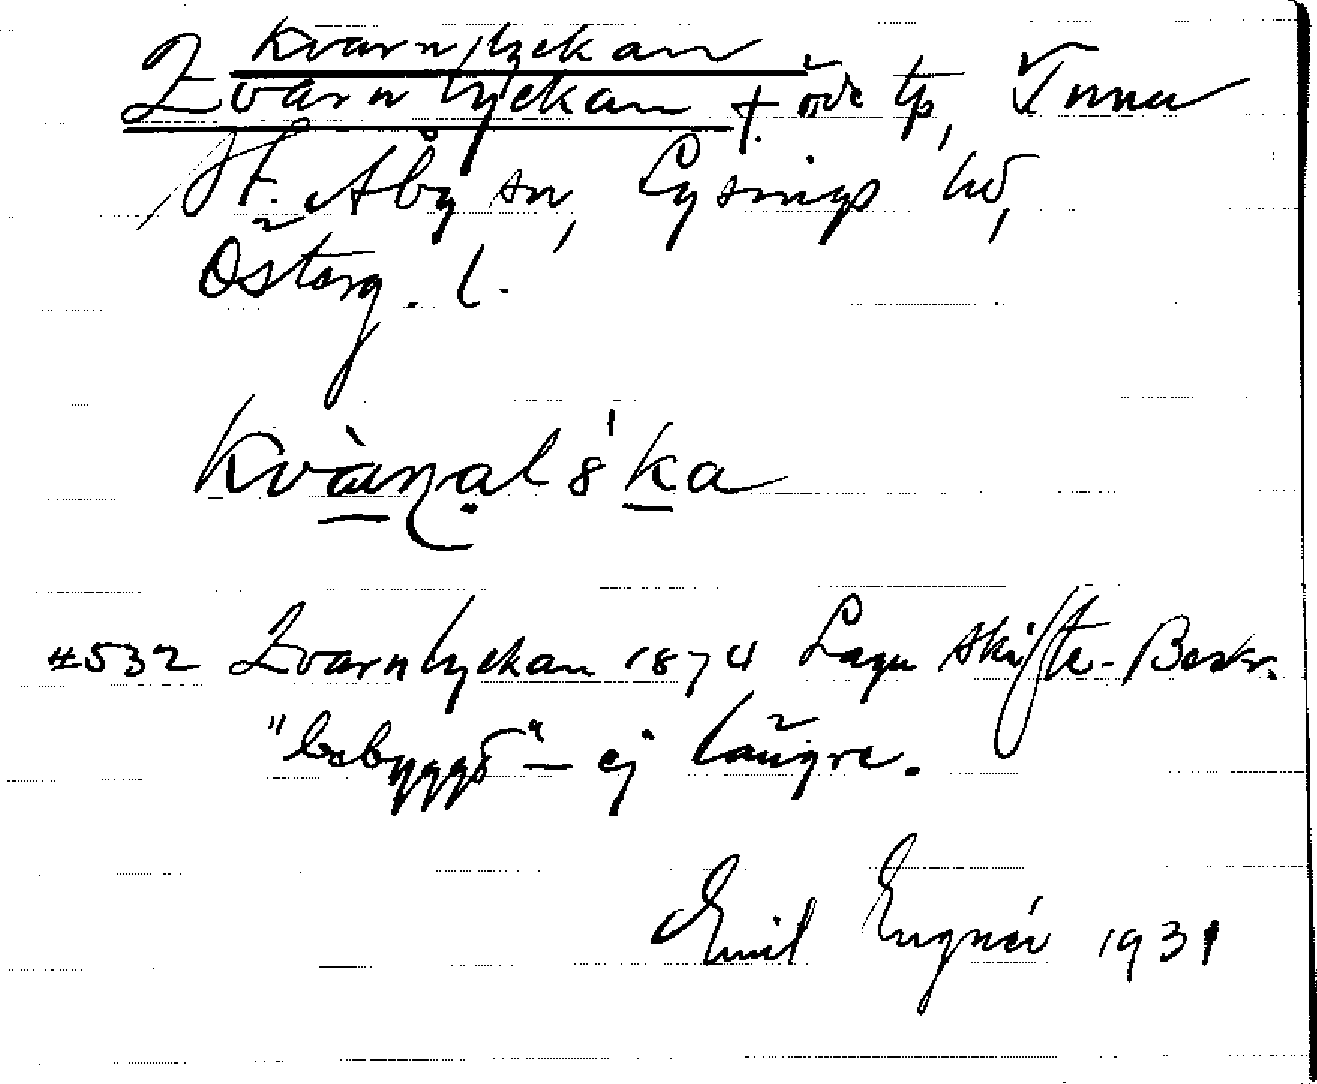 Kvarnlyckan
Qvarnlyckan †. öde tp, Tnna
St. Åby sn, Lysings hd,
Österg. l.
Kvànal8'ka
#532 Qvarnlyckan 1874 Laga Skifte-Beskr.
"bebyggd" – ej längre.
Emil 1931